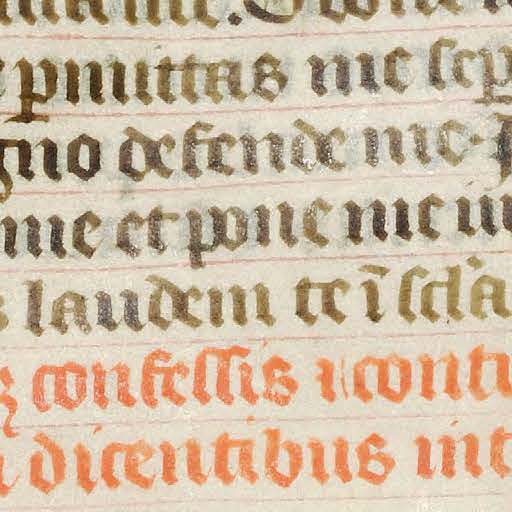 pmittas me sep
gno defende me.
me et pone me iu
laudem te ī scl'a
confessis ⁊ contri
dicentibus